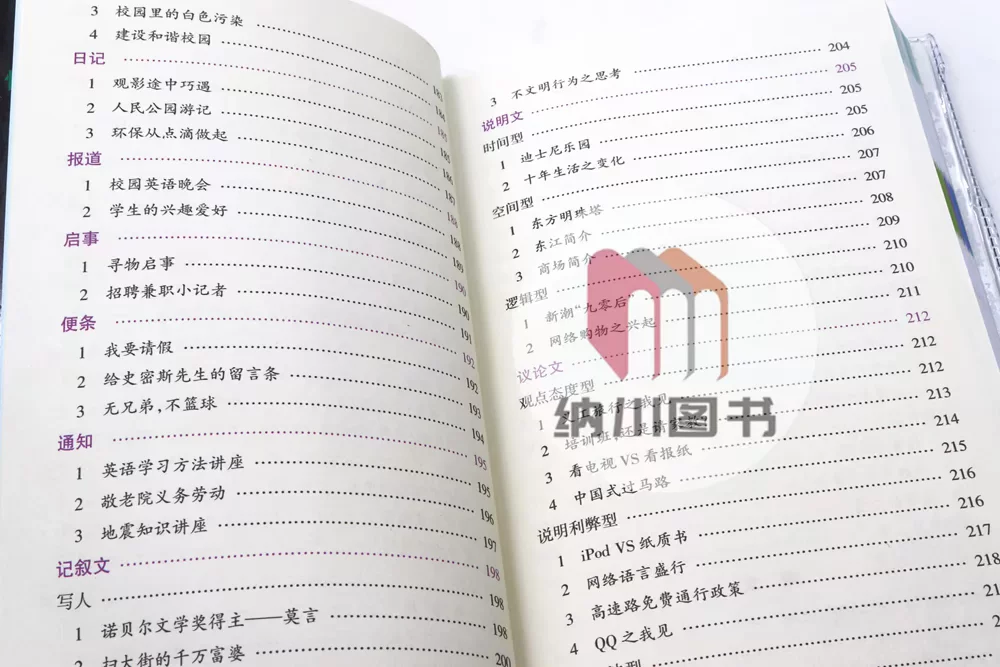 3 校园里的白色污染 …… 183
4 建设和谐校园 …… 184
日记 …… 185
1 观影途中巧遇 …… 185
2 人民公园游记 …… 186
3 环保从点滴做起 …… 187
报道 …… 188
1 校园英语晚会 …… 188
2 学生的兴趣爱好 …… 189
启事 …… 190
1 寻物启事 …… 190
2 招聘兼职小记者 …… 191
便条 …… 192
1 我要请假 …… 192
2 给史密斯先生的留言条 …… 193
3 无兄弟,不篮球 …… 194
通知 …… 195
1 英语学习方法讲座 …… 195
2 敬老院义务劳动 …… 196
3 地震知识讲座 …… 197
记叙文 …… 198
写人 …… 198
1 诺贝尔文学奖得主——莫言 …… 198
2 扫大街的千万富婆 …… 200
3 不文明行为之思考 …… 204
说明文 …… 205
时间型 …… 205
1 迪士尼乐园 …… 205
2 十年生活之变化 …… 206
空间型 …… 207
1 东方明珠塔 …… 207
2 东江简介 …… 208
3 商场简介 …… 209
逻辑型 …… 210
1 新潮“九零后” …… 210
2 网络购物之兴起 …… 211
议论文 …… 212
观点态度型 …… 212
1 旅行之我见 …… 212
2 培训班,还是请家教? …… 213
3 看电视 VS 看报纸 …… 214
4 中国式过马路 …… 215
说明利弊型 …… 216
1 iPod VS 纸质书 …… 216
2 网络语言盛行 …… 217
3 高速路免费通行政策 …… 218
4 QQ 之我见
纳川图书